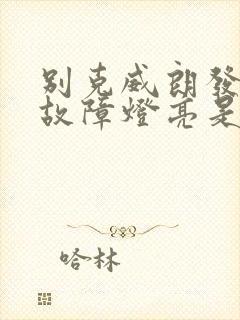 別克威朗發
故障燈亮是
哈林